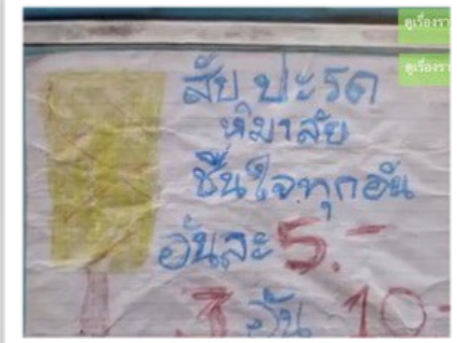 ดูเรื่องรา
ดูเรื่องรา
สับ ปะรด
หิมาลัย
ชื่นใจทุกอัน
อันละ 5.-
3 อัน 10.-